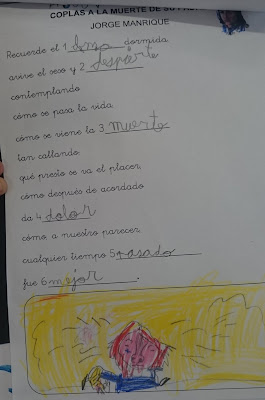 COPLAS A LA MUERTE DE SU
JORGE MANRIQUE
Recuerde el 1 dormida
avive el seso y 2 despierte
contemplando
cómo se pasa la vida,
cómo se viene la 3 muerte
tan callando.
qué presto se va el placer,
cómo después de acordado
da 4 dolor
cómo, a nuestro parecer,
cualquier tiempo 5 pasado
fue 6 mejor.